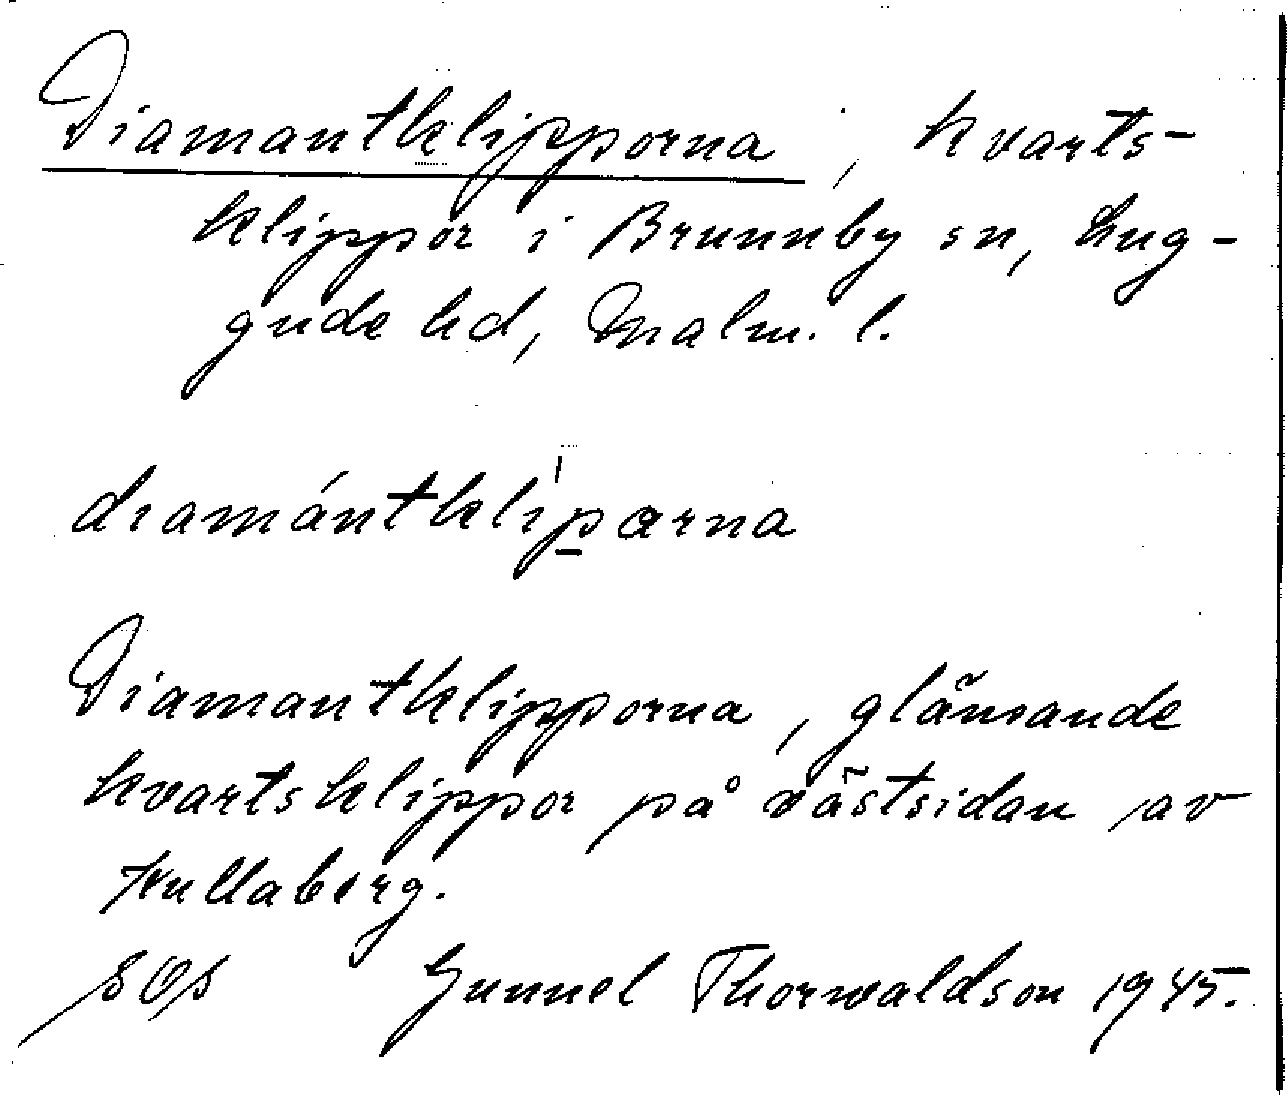 Diamantklipporna, kvarts-
klippor i Brunnby sn, Lug-
gude hd, Malm. l.
diamántklip̲arna
Diamantklipporna, glänsande
kvartsklippor på västsidan av
Kullaberg.
SOS Gunnel Thorwaldson 1945.